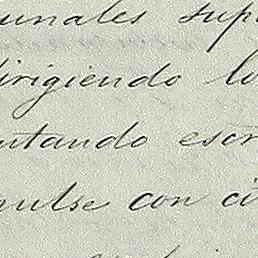 unales sup
dirigiendo lo
ntando escr
pulse con ci